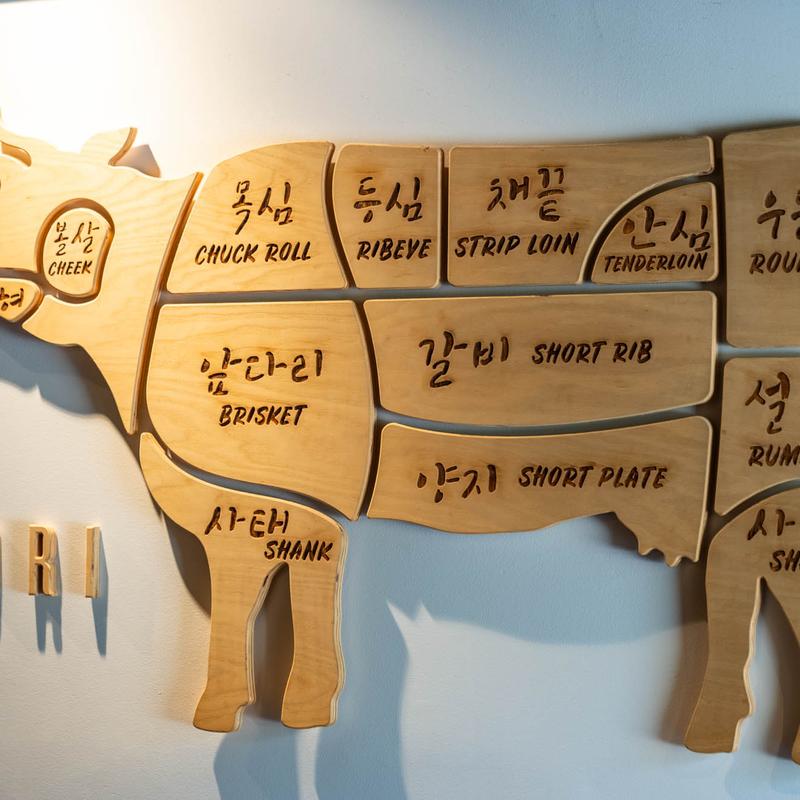 볼살
CHEEK
목심
CHUCK ROLL
등심
RIBEYE
채끝
STRIP LOIN
안심
TENDERLOIN
앞다리
BRISKET
갈비 SHORT RIB
양지 SHORT PLATE
사태
SHANK
설
RUM
RI